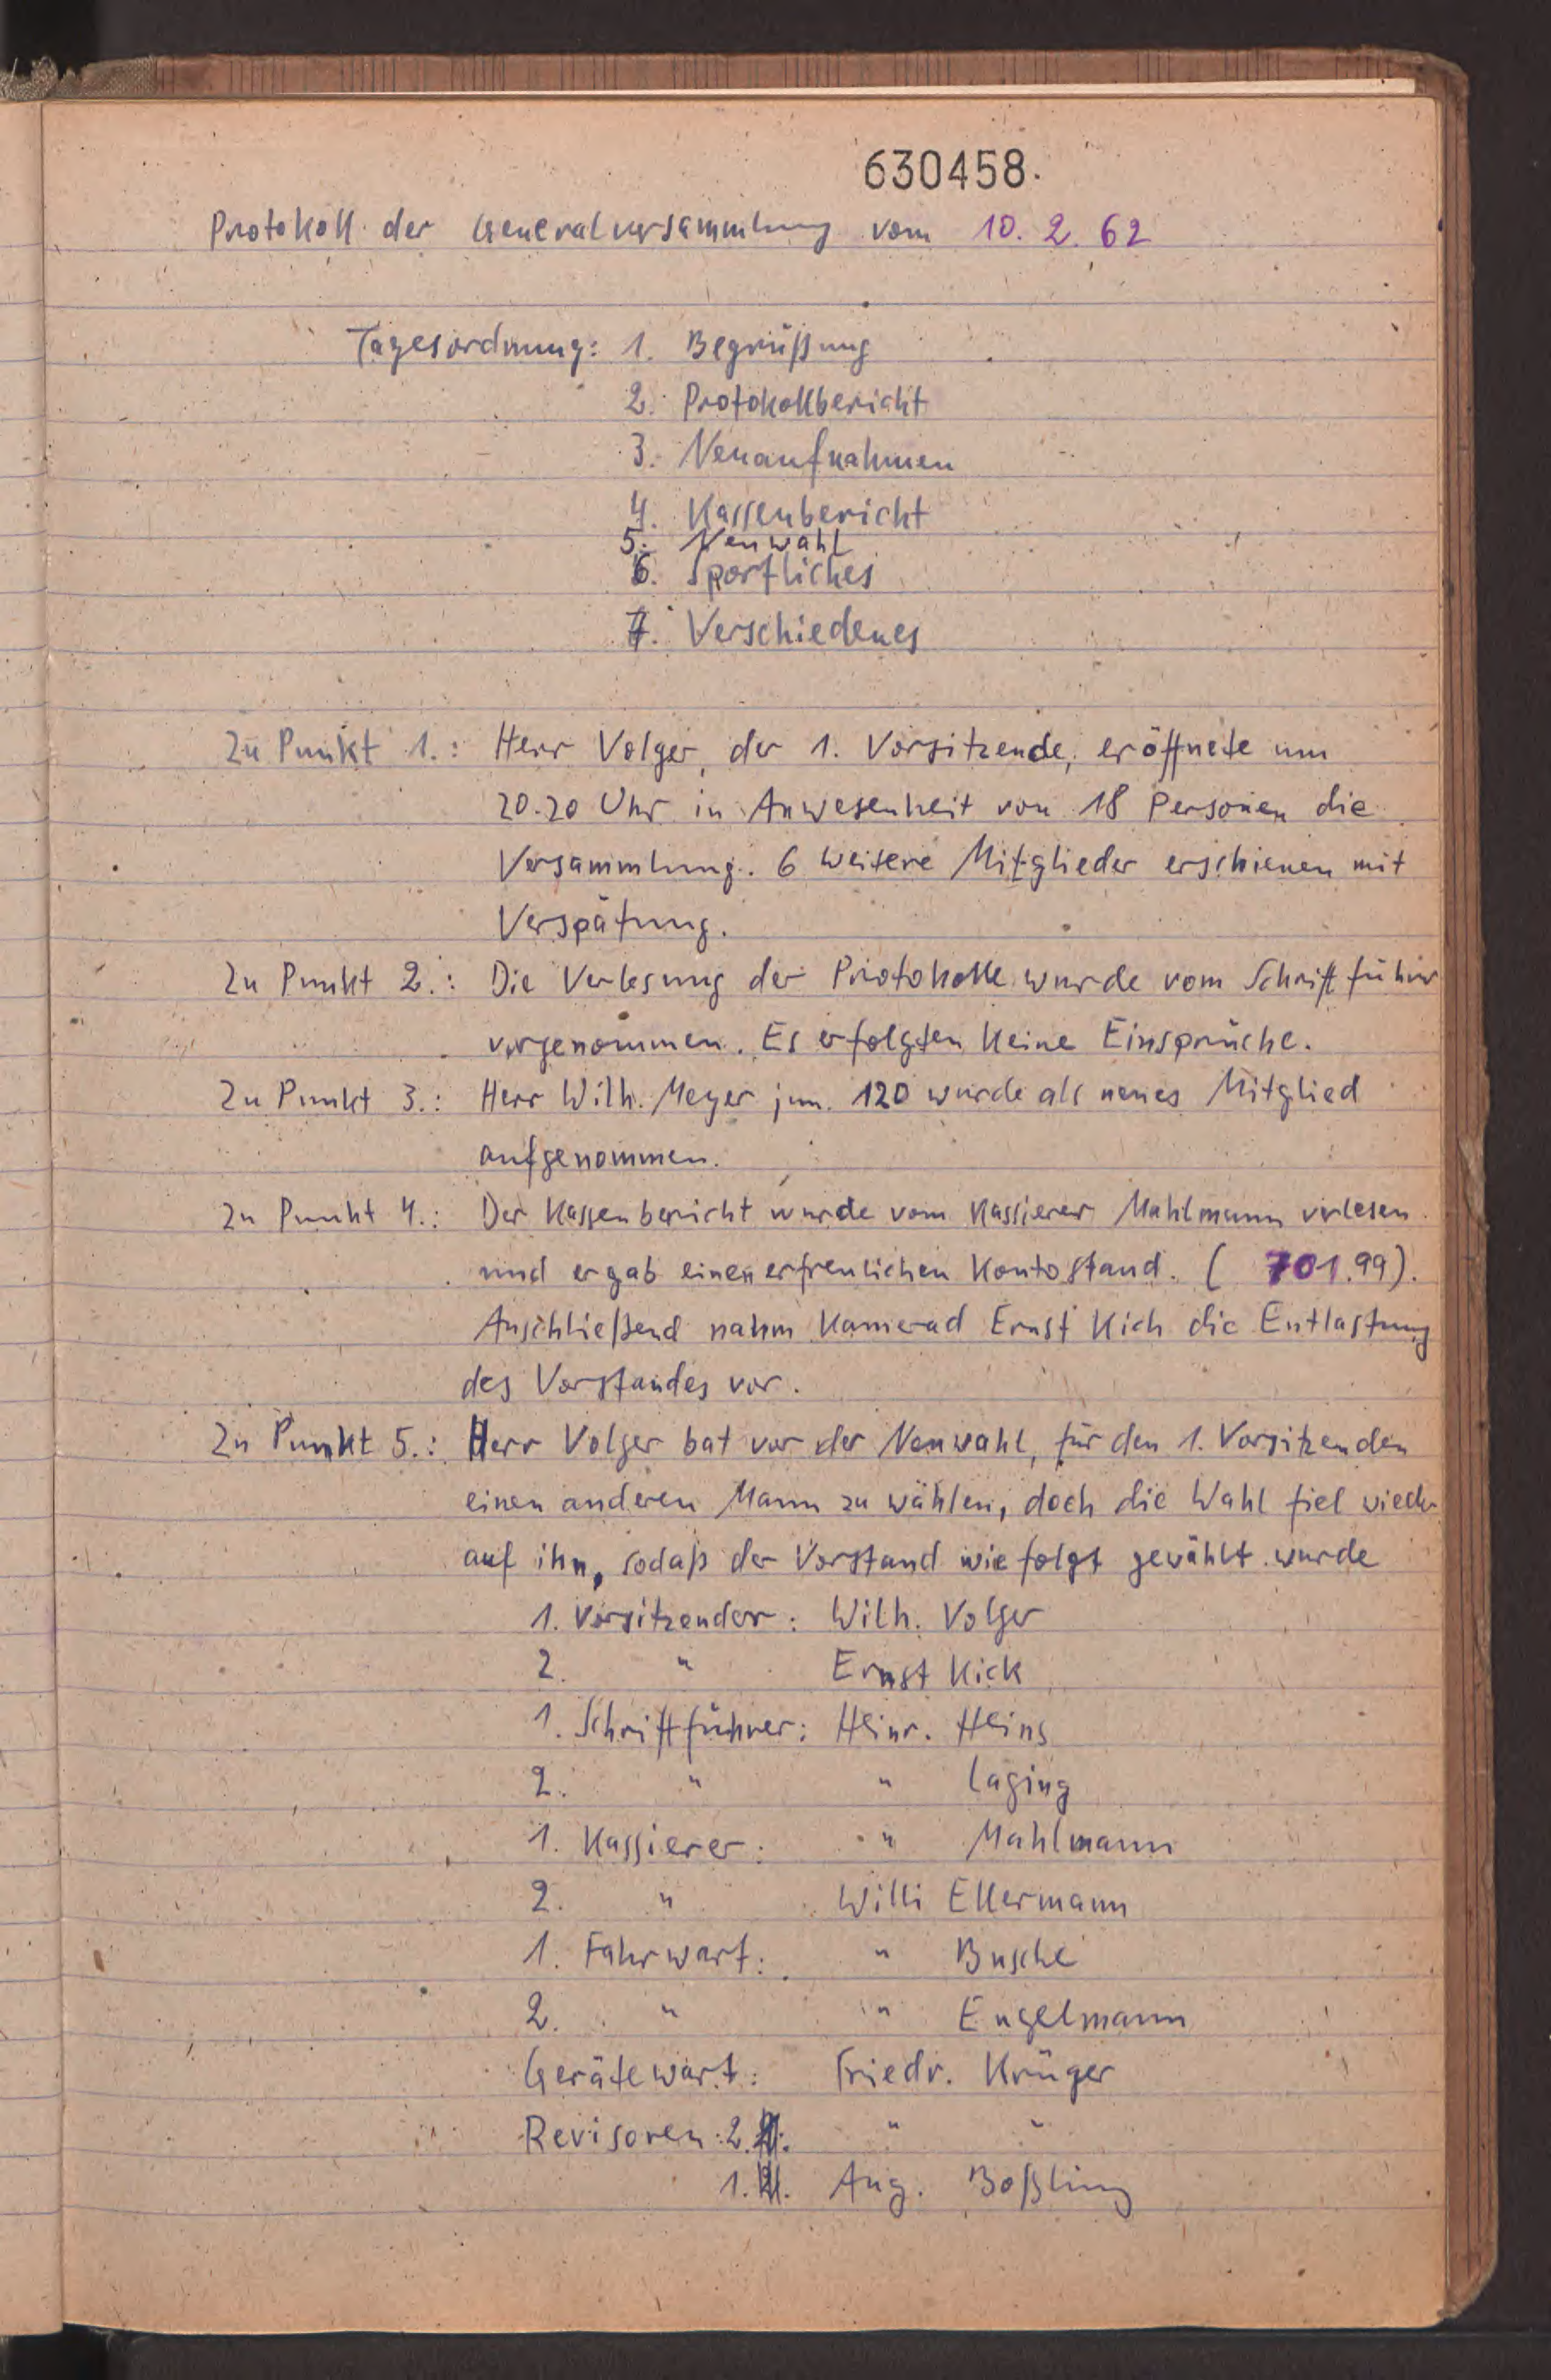 630458.
Protokoll der Generalversammlung vom 10. 2. 62
Tagesordnung: 1. Begrüßung
2. Protokollbericht
3. Neuaufnahmen
4. Kassenbericht
5. Neuwahl
6. Sportliches
7. Verschiedenes
Zu Punkt 1.: Herr Volger, der 1. Vorsitzende, eröffnete um
20.20 Uhr in Anwesenheit von 18 Personen die
Versammlung. 6 weitere Mitglieder erschienen mit
Verspätung.
Zu Punkt 2.: Die Verlesung der Protokolle wurde vom Schriftführer
vorgenommen. Es erfolgten keine Einsprüche.
Zu Punkt 3.: Herr Wilh. Meyer jun. 120 wurde als neues Mitglied
aufgenommen.
Zu Punkt 4.: Der Kassenbericht wurde vom Kassierer Mahlmann verlesen
und ergab einen erfreulichen Kontostand. ( 701.99).
Anschließend nahm Kamerad Ernst Kick die Entlastung
des Vorstandes vor.
Zu Punkt 5.: Herr Volger bat vor der Neuwahl, für den 1. Vorsitzenden
einen anderen Mann zu wählen, doch die Wahl fiel wieder
auf ihn, sodaß der Vorstand wie folgt gewählt wurde
1. Vorsitzender: Wilh. Volger
2. " Ernst Kick
1. Schriftführer: Heinr. Heins
2. " " Laging
1. Kassierer: " Mahlmann
2. " Willi Ellermann
1. Fahrwart: " Busche
2. " " Engelmann
Gerätewart: Friedr. Krüger
Revisoren: 2. " "
1. Aug. Boßling